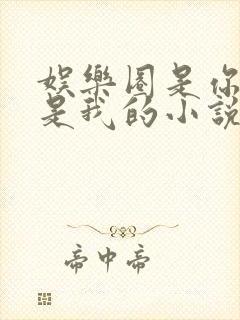 娛樂圈是你
是我的小說
帝中帝